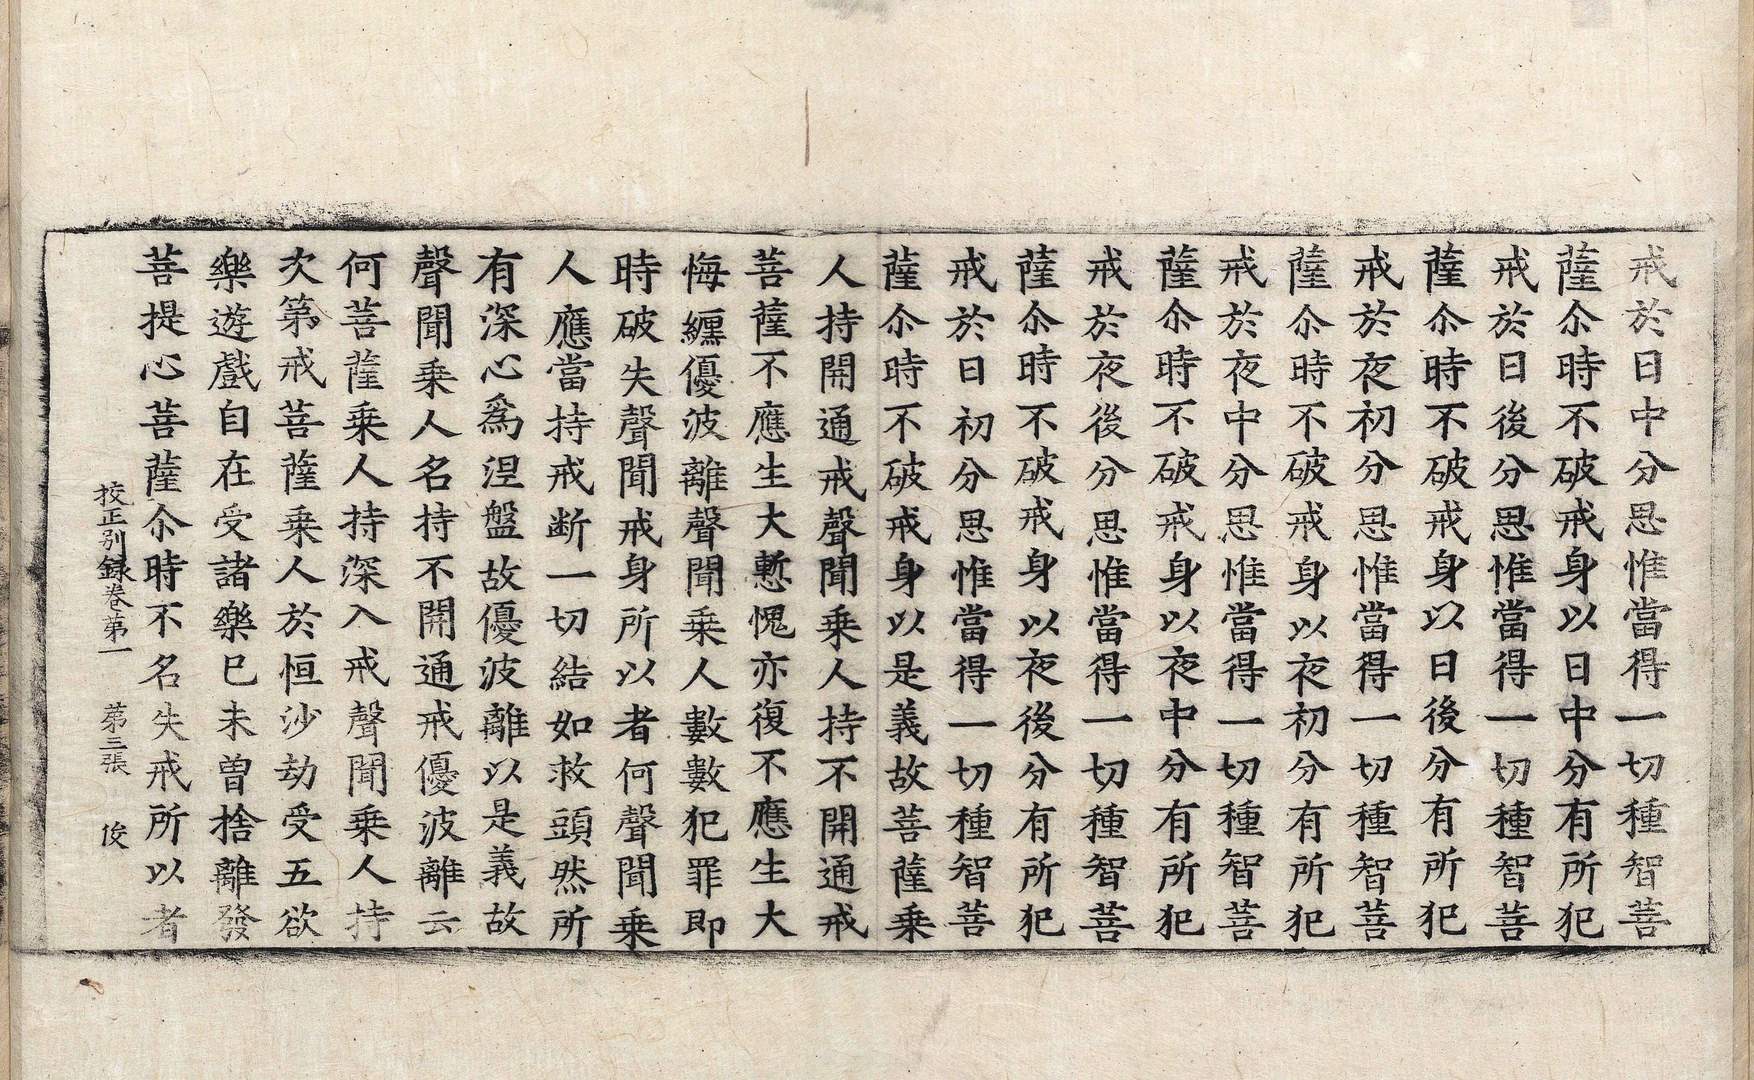 戒於日中分思惟當得一切種智菩
薩尒時不破戒身以日中分有所犯
戒於日後分思惟當得一切種智菩
薩尒時不破戒身以日後分有所犯
戒於夜初分思惟當得一切種智菩
薩尒時不破戒身以夜初分有所犯
戒於夜中分思惟當得一切種智菩
薩尒時不破戒身以夜中分有所犯
戒於夜後分思惟當得一切種智菩
薩尒時不破戒身以夜後分有所犯
戒於日初分思惟當得一切種智菩
薩尒時不破戒身以是義故菩薩乗
人持開通戒聲聞乗人持不開通戒
菩薩不應生大慙愧亦復不應生大
悔纏優波離聲聞乗人數數犯罪即
時破失聲聞戒身所以者何聲聞乗
人應當持戒断一切結如救頭然所
有深心為涅盤故優波離以是義故
聲聞乗人名持不開通戒優波離云
何菩薩乗人持深入戒聲聞乗人持
次第戒菩薩乗人於恒沙劫受五欲
樂遊戲自在受諸樂已未曾捨離發
菩提心菩薩尒時不名失戒所以者
校正別録卷第一 第三張 俊